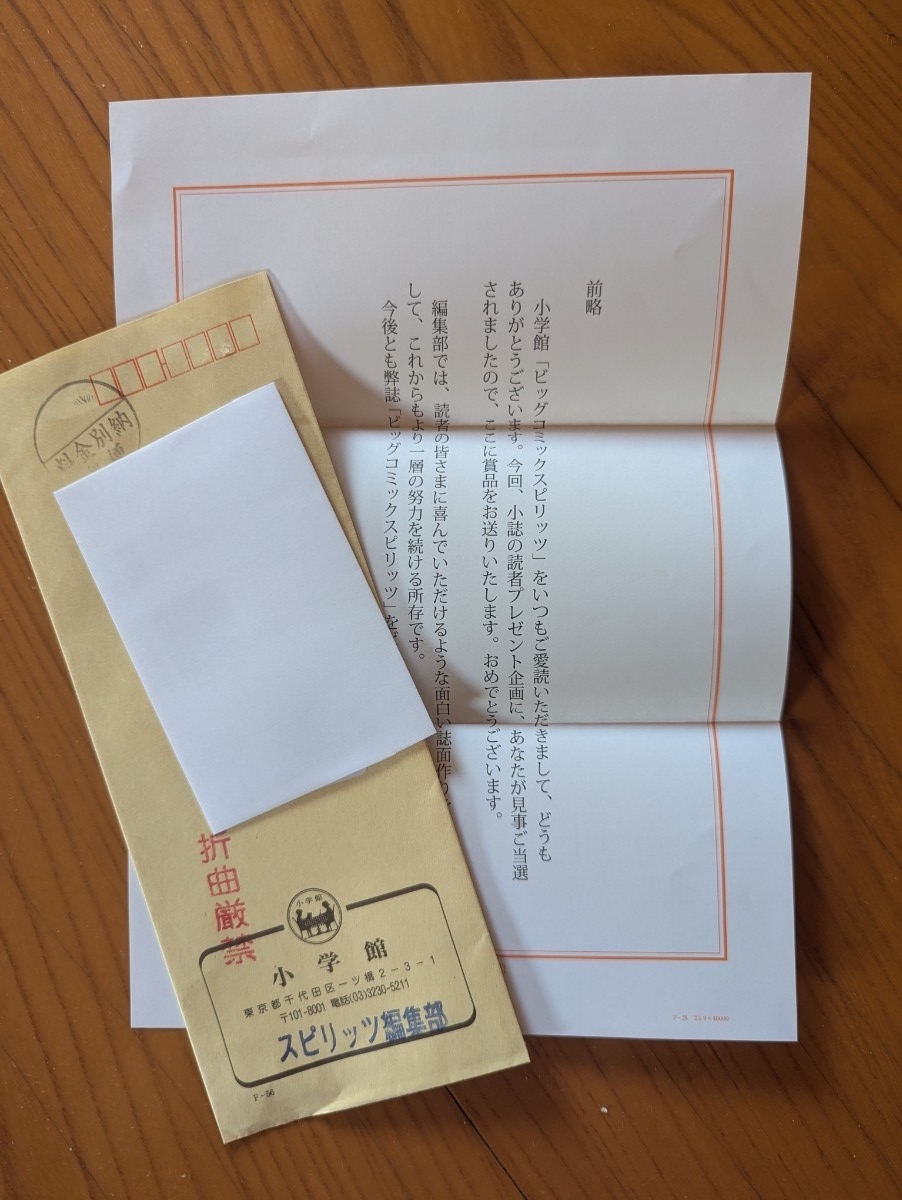 前略
小学館「ビッグコミックスピリッツ」をいつもご愛読いただきまして、どうも
ありがとうございます。今回、小誌の読者プレゼント企画に、あなたが見事ご当選
されましたので、ここに賞品をお送りいたします。おめでとうございます。
編集部では、読者の皆さまに喜んでいただけるような面白い誌面作り
して、これからもより一層の努力を続ける所存です。
今後とも弊誌「ビッグコミックスピリッツ」を
金別納
折曲厳禁
小学館
小学館
東京都千代田区一ツ橋2-3-1
〒101-8001 電話(03)3230-5211
スピリッツ編集部
F-56